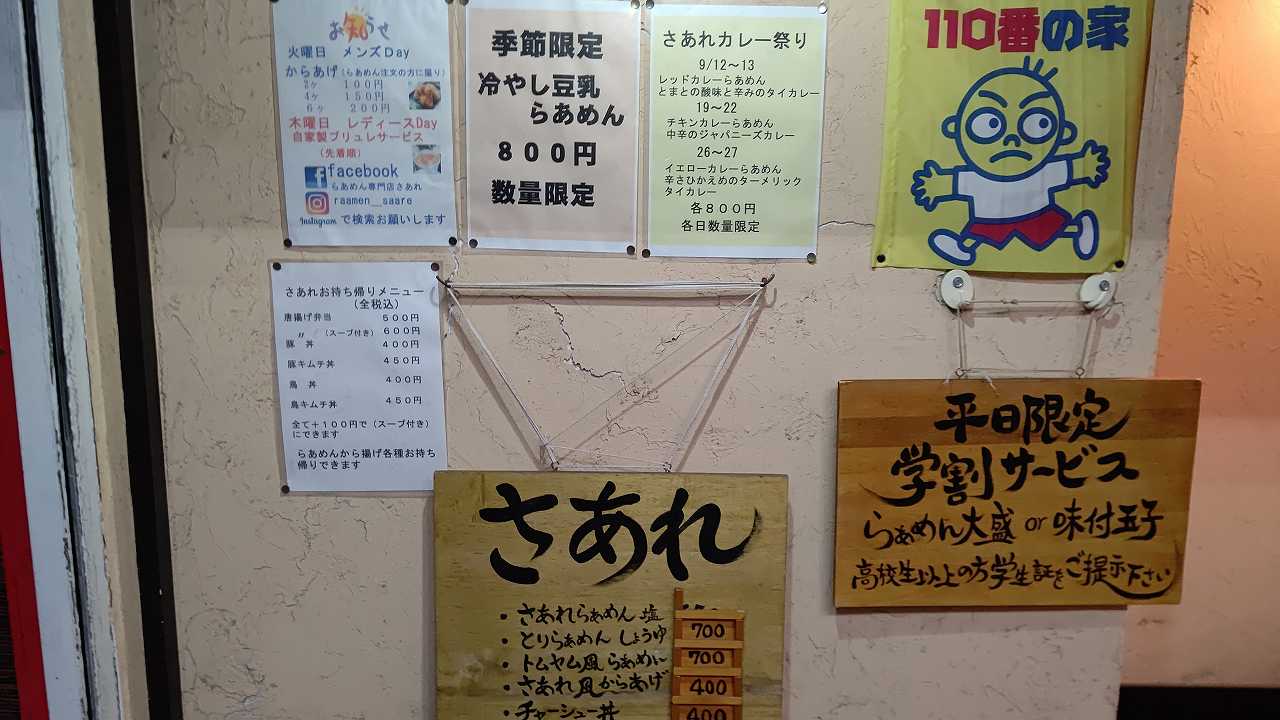 お知らせ
火曜日 メンズDay
からあげ(らあめん注文の方に限り)
2ヶ 100円
4ヶ 150円
6ヶ 200円
木曜日 レディースDay
自家製ブリュレサービス
(先着順)
facebook
らあめん専門店さあれ
raamen__saare
Instagram で検索お願いします
季節限定
冷やし豆乳
らあめん
800円
数量限定
さあれカレー祭り
9/12~13
レッドカレーらあめん
とまとの酸味と辛みのタイカレー
19~22
チキンカレーらあめん
中辛のジャパニーズカレー
26~27
イエローカレーらあめん
辛さひかえめのターメリック
タイカレー
各800円
各日数量限定
110番の家
さあれお持ち帰りメニュー
(全税込)
唐揚げ弁当 500円
〃 (スープ付き) 600円
豚 丼 400円
豚キムチ丼 450円
鳥 丼 400円
鳥キムチ丼 450円
全て+100円で(スープ付き)
にできます
らあめんから揚げ各種お持ち
帰りできます
さあれ
・さあれらあめん 塩
・とりらあめん しょうゆ 700
・トムヤム風らあめん 700
・さあれ風からあげ 400
・チャーシュー丼 400
平日限定
学割サービス
らぁめん大盛 or 味付玉子
高校生以上の方学生証をご提示下さい